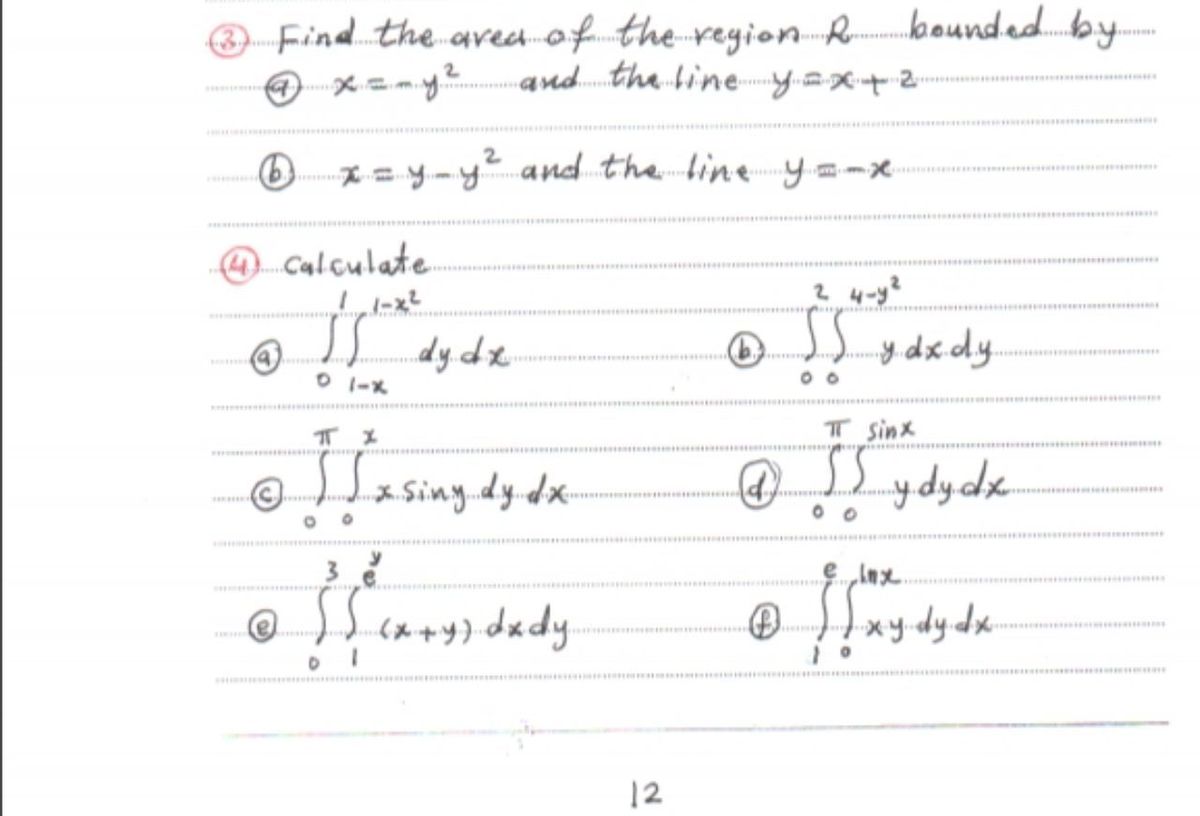 ③ Find the area of the region R bounded by
ⓐ x = -y² and the line y = x + 2
ⓑ x = y - y² and the line y = -x
④ Calculate
ⓐ ∫₀¹ ∫₁₋ₓ^(1-x²) dy dx ⓑ ∫₀² ∫₀^(4-y²) y dx dy
ⓒ ∫₀^π ∫₀^x x sin y dy dx ⓓ ∫₀^π ∫₀^(sin x) y dy dx
ⓔ ∫₀³ ∫₁^(e^y) (x + y) dx dy ⓕ ∫₁^e ∫₀^(ln x) xy dy dx
12